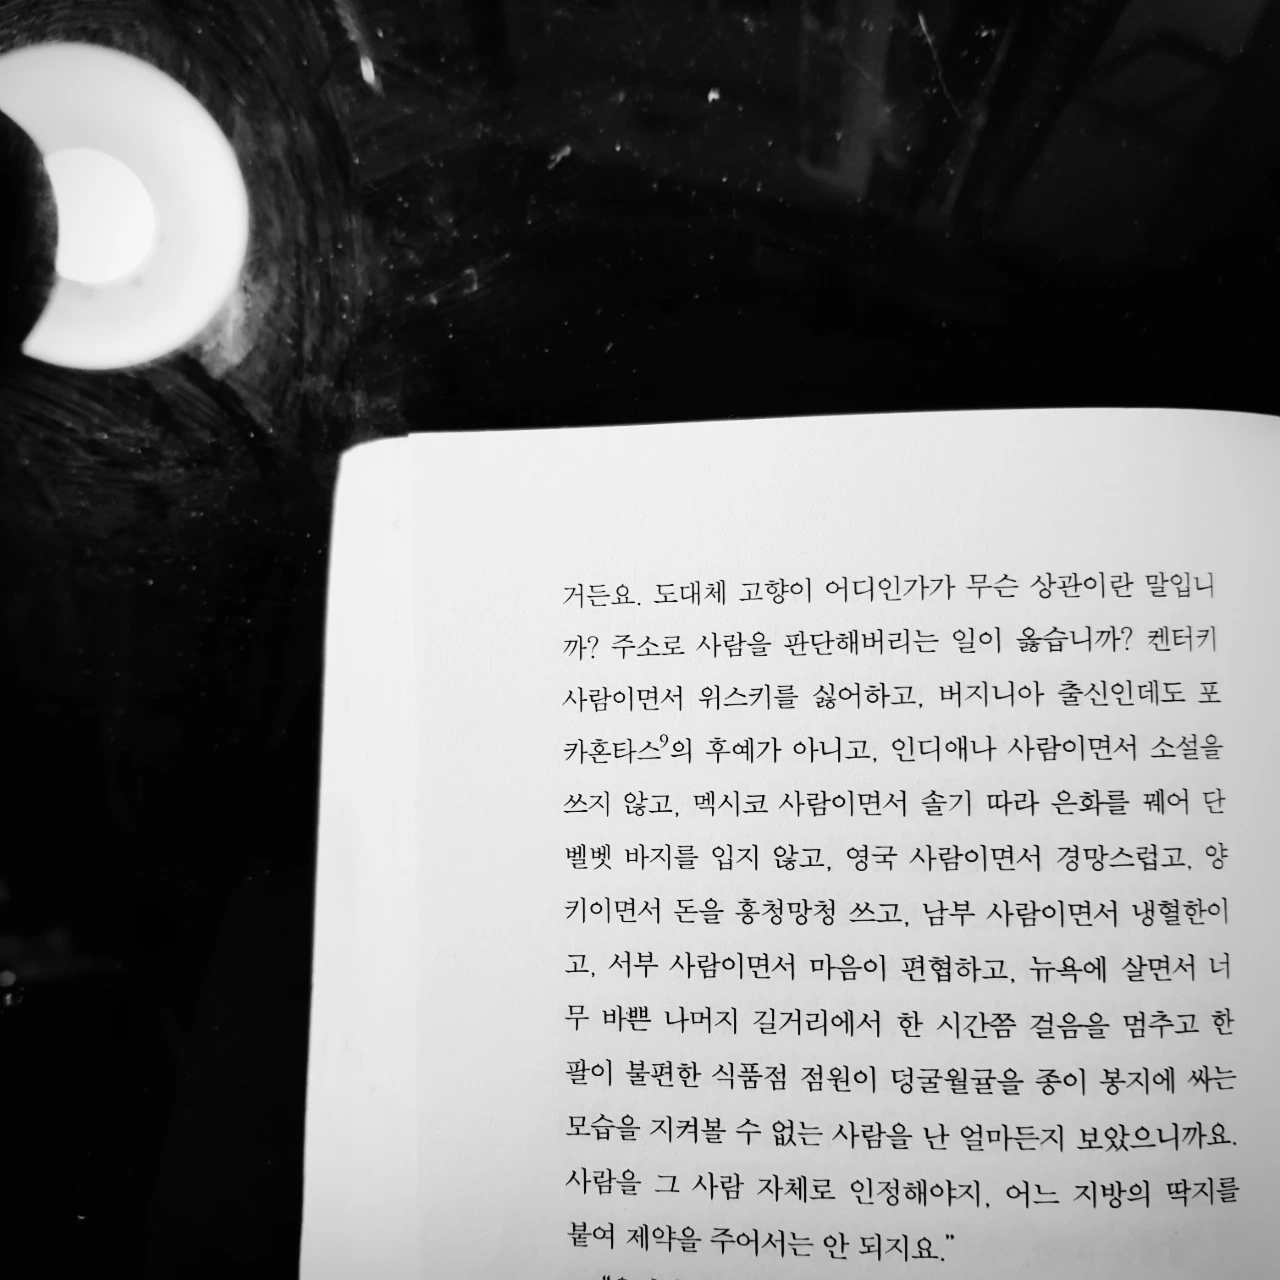 거든요. 도대체 고향이 어디인가가 무슨 상관이란 말입니
까? 주소로 사람을 판단해버리는 일이 옳습니까? 켄터키
사람이면서 위스키를 싫어하고, 버지니아 출신인데도 포
카혼타스9의 후예가 아니고, 인디애나 사람이면서 소설을
쓰지 않고, 멕시코 사람이면서 솔기 따라 은화를 꿰어 단
벨벳 바지를 입지 않고, 영국 사람이면서 경망스럽고, 양
키이면서 돈을 흥청망청 쓰고, 남부 사람이면서 냉혈한이
고, 서부 사람이면서 마음이 편협하고, 뉴욕에 살면서 너
무 바쁜 나머지 길거리에서 한 시간쯤 걸음을 멈추고 한
팔이 불편한 식품점 점원이 덩굴월귤을 종이 봉지에 싸는
모습을 지켜볼 수 없는 사람을 난 얼마든지 보았으니까요.
사람을 그 사람 자체로 인정해야지, 어느 지방의 딱지를
붙여 제약을 주어서는 안 되지요.”